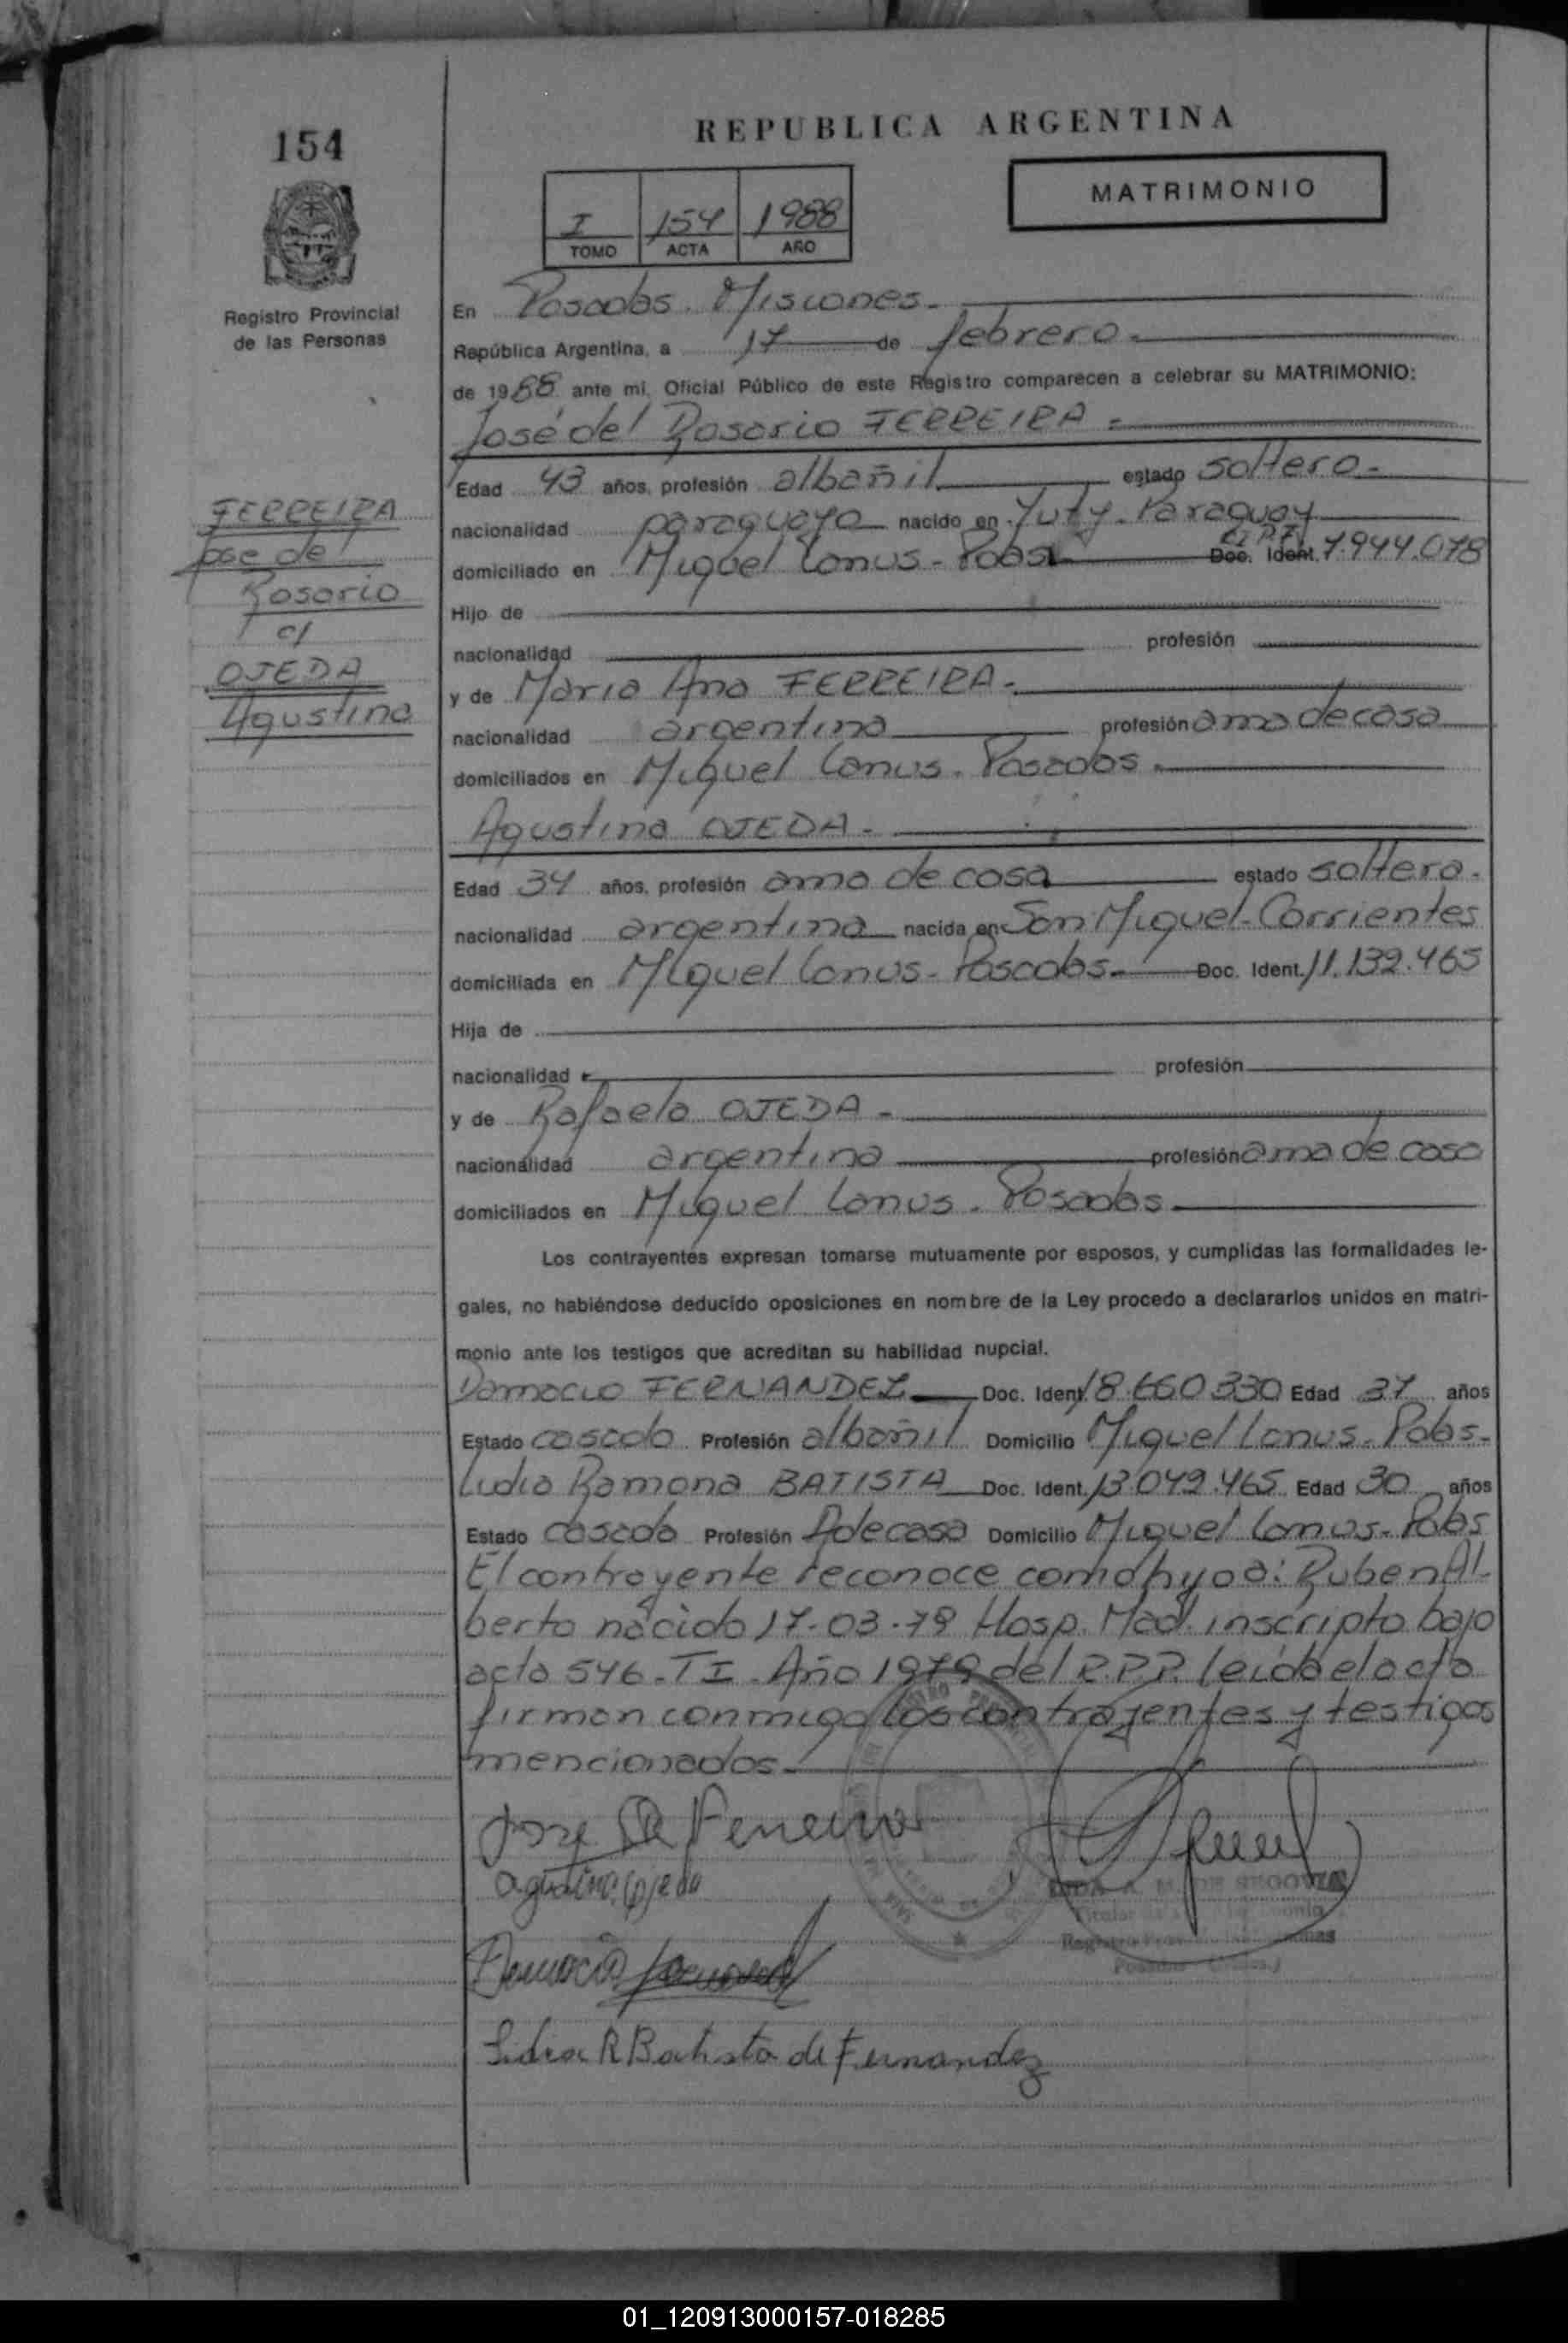 REPUBLICA ARGENTINA
154
MATRIMONIO
I 154 1988
TOMO ACTA AÑO
Registro Provincial
de las Personas
En Posadas. Misiones.
República Argentina, a 17 de febrero.
de 1988 ante mi, Oficial Público de este Registro comparecen a celebrar su MATRIMONIO:
José del Rosario FERREIRA.
Edad 43 años, profesión albañil estado soltero.
FERREIRA
José del
Rosario
c/
OJEDA
Agustina
nacionalidad paraguaya nacido en Yuty. Paraguay
domiciliado en Miguel Lanus - Pdas Doc. Ident. CIPF 7.944.078
Hijo de
nacionalidad profesión
y de Maria Ana FERREIRA.
nacionalidad argentina profesión ama de casa
domiciliados en Miguel Lanus. Posadas.
Agustina OJEDA.
Edad 34 años, profesión ama de casa estado soltera.
nacionalidad argentina nacida en San Miguel-Corrientes
domiciliada en Miguel Lanus - Posadas. Doc. Ident. 11.132.465
Hija de
nacionalidad profesión
y de Rafaela OJEDA.
nacionalidad argentina profesión ama de casa
domiciliados en Miguel Lanus. Posadas
Los contrayentes expresan tomarse mutuamente por esposos, y cumplidas las formalidades le-
gales, no habiéndose deducido oposiciones en nombre de la Ley procedo a declararlos unidos en matri-
monio ante los testigos que acreditan su habilidad nupcial.
Damacio FERNANDEZ Doc. Ident. 18.660.330 Edad 37 años
Estado casado Profesión albañil Domicilio Miguel Lanus. Pdas.
Lidia Ramona BATISTA Doc. Ident. 13.049.465 Edad 30 años
Estado casada Profesión A de casa Domicilio Miguel Lanus. Pdas
El contrayente reconoce como hijo a: Ruben Al-
berto nacido 17-03-79 Hosp. Mad. inscripto bajo
acta 546-TI-Año 1979 del R.P.P. leida el acta
firman conmigo los contrayentes y testigos
mencionados.
Jose D R Ferreira
agustina Ojeda
Damacio Fernandez
Lidia R Batista de Fernandez
A. M. DE SEGOVIA
Titular
01_120913000157-018285